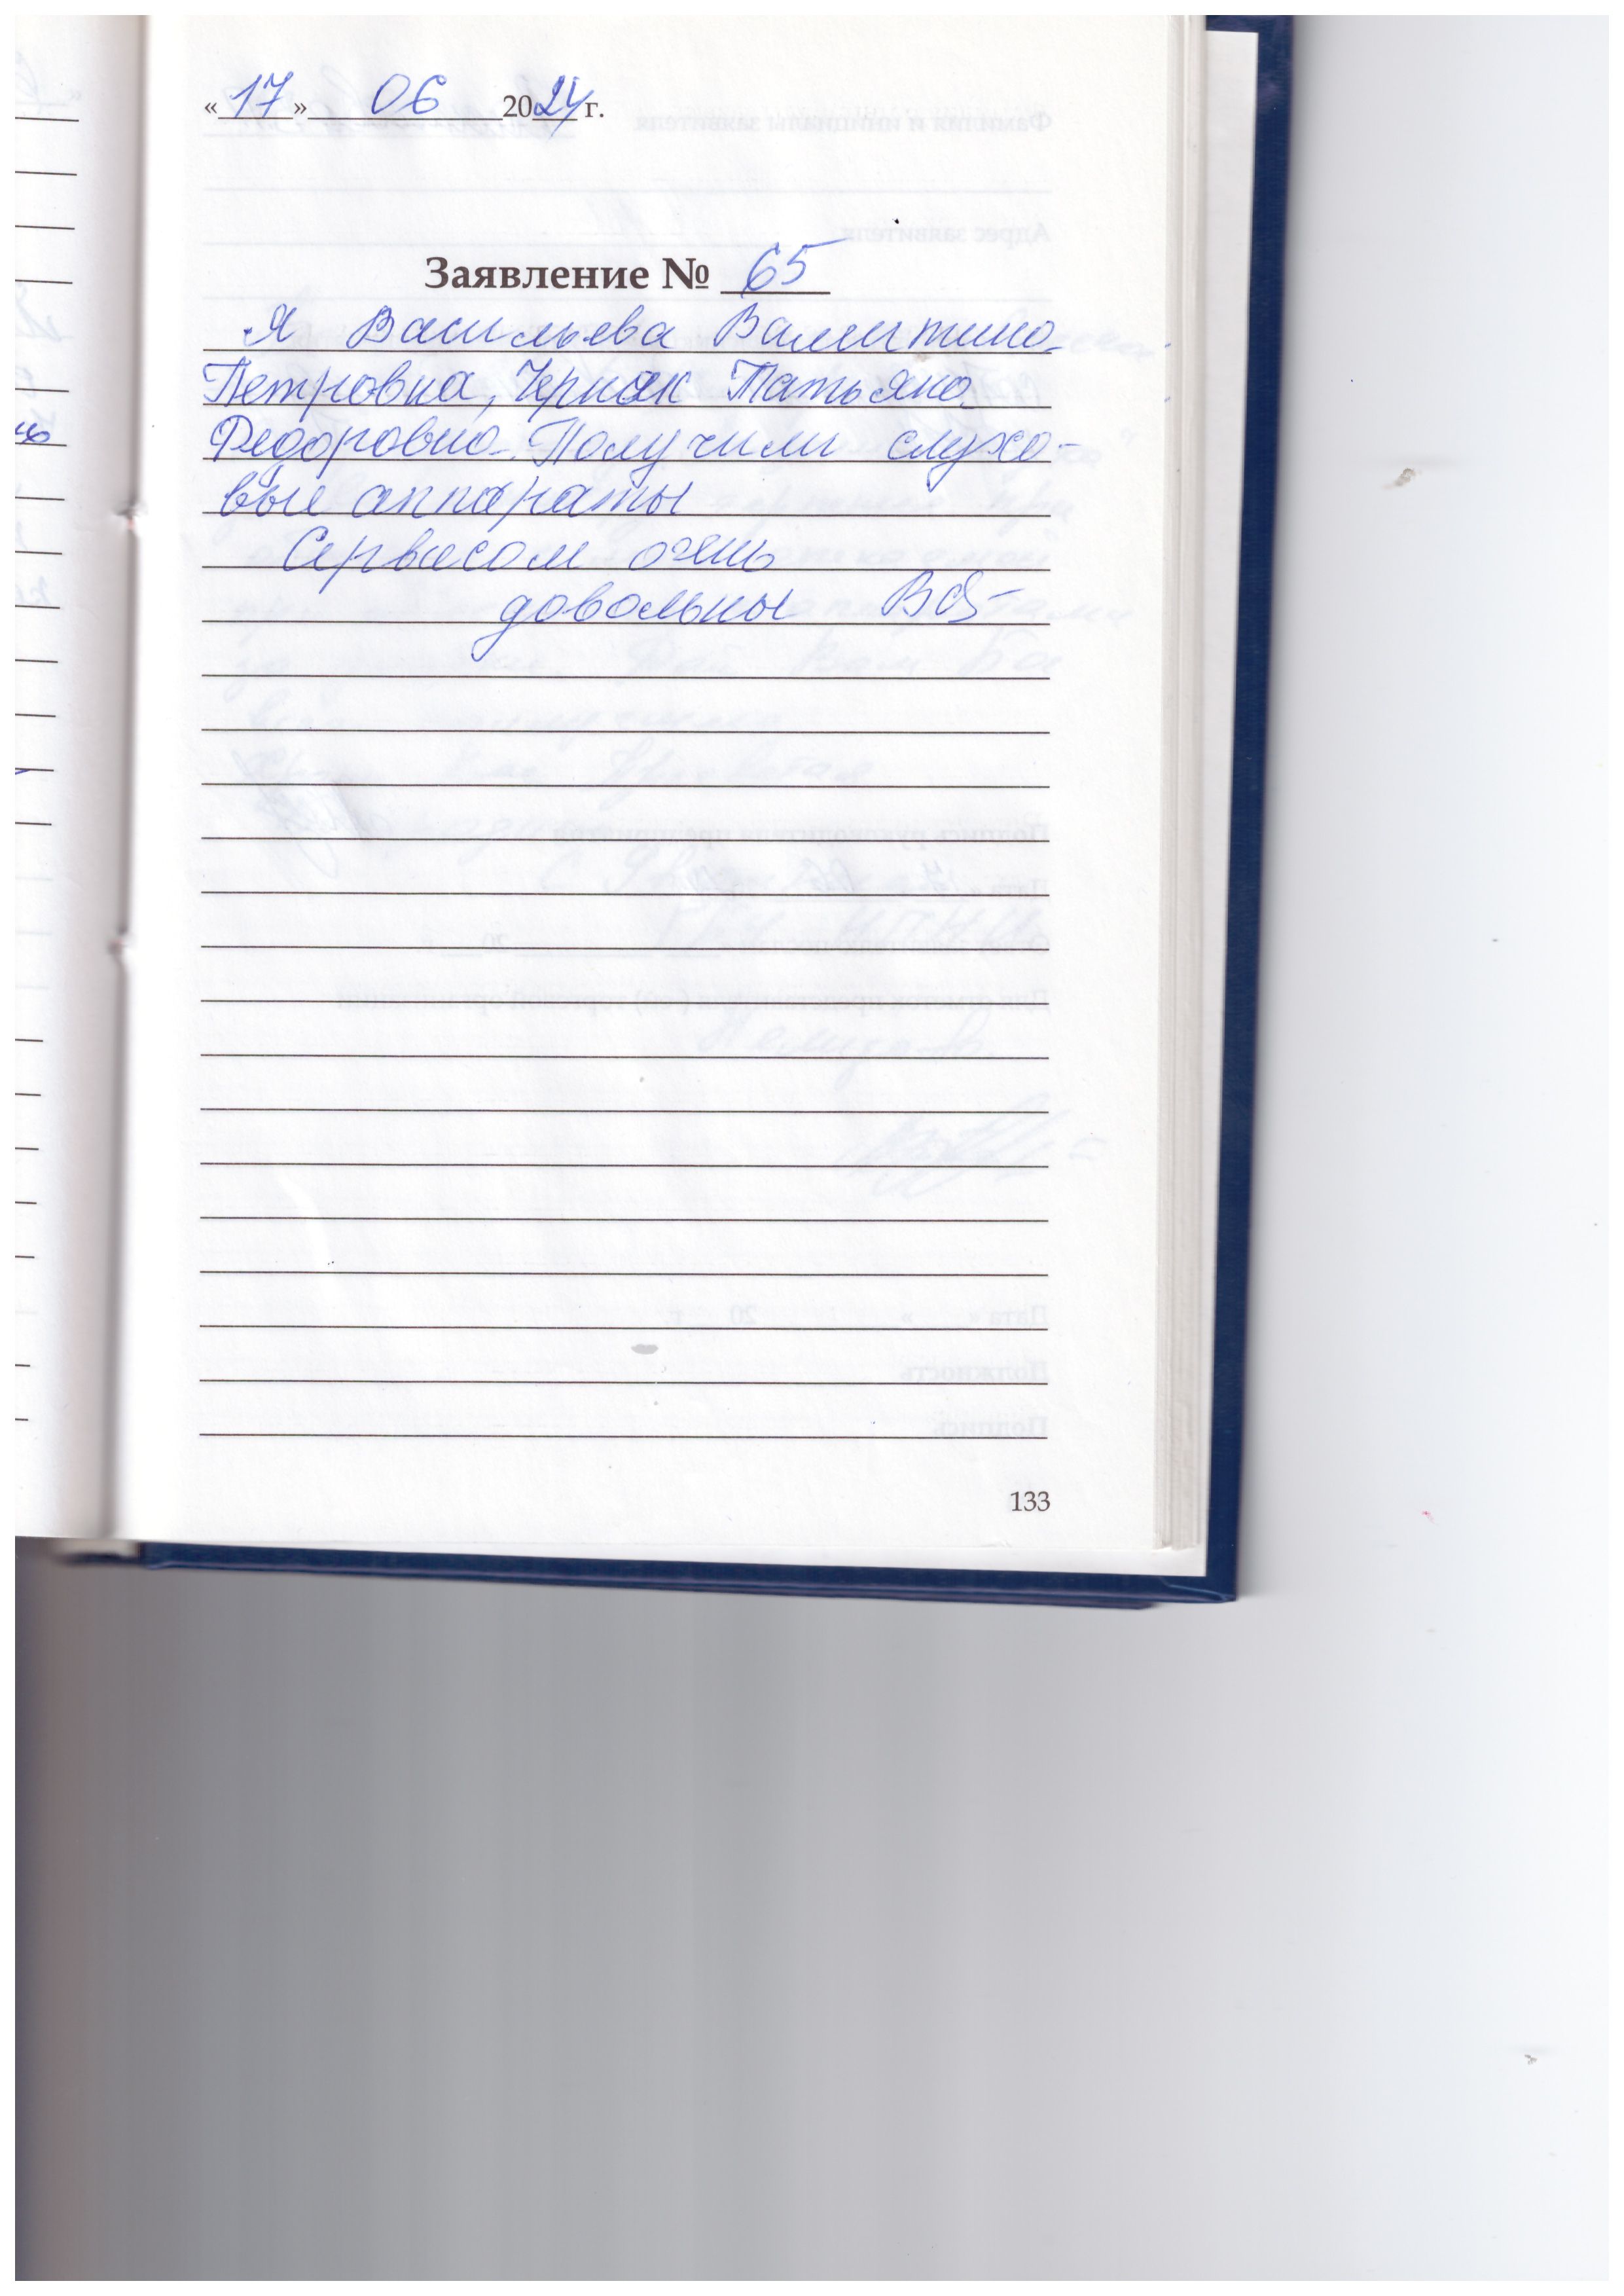 «17» 06 2024 г.
Заявление № 65
Я Васильева Валентина
Петровна, Черняк Татьяна
Федоровна. Получили слухо-
вые аппараты
Сервасом очень
довольны
133